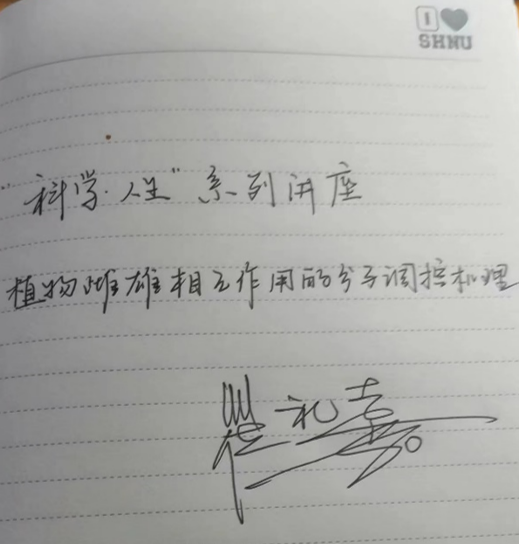 I
SHNU
"科学·人生"系列讲座
植物雌雄相互作用的分子调控机理
礼嘉